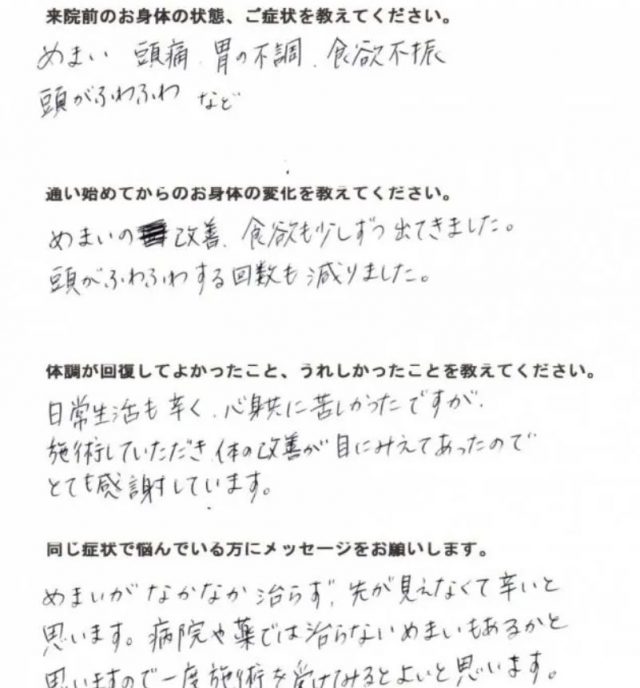 来院前のお身体の状態、ご症状を教えてください。
めまい 頭痛、胃の不調、食欲不振
頭がふわふわ など
通い始めてからのお身体の変化を教えてください。
めまいの改善、食欲も少しずつ出てきました。
頭がふわふわする回数も減りました。
体調が回復してよかったこと、うれしかったことを教えてください。
日常生活も辛く、心身共に苦しかったですが、
施術していただき体の改善が目にみえてあったので
とても感謝しています。
同じ症状で悩んでいる方にメッセージをお願いします。
めまいがなかなか治らず、先が見えなくて辛いと
思います。病院や薬では治らないめまいもあるかと
思いますので一度施術を受けてみるとよいと思います。